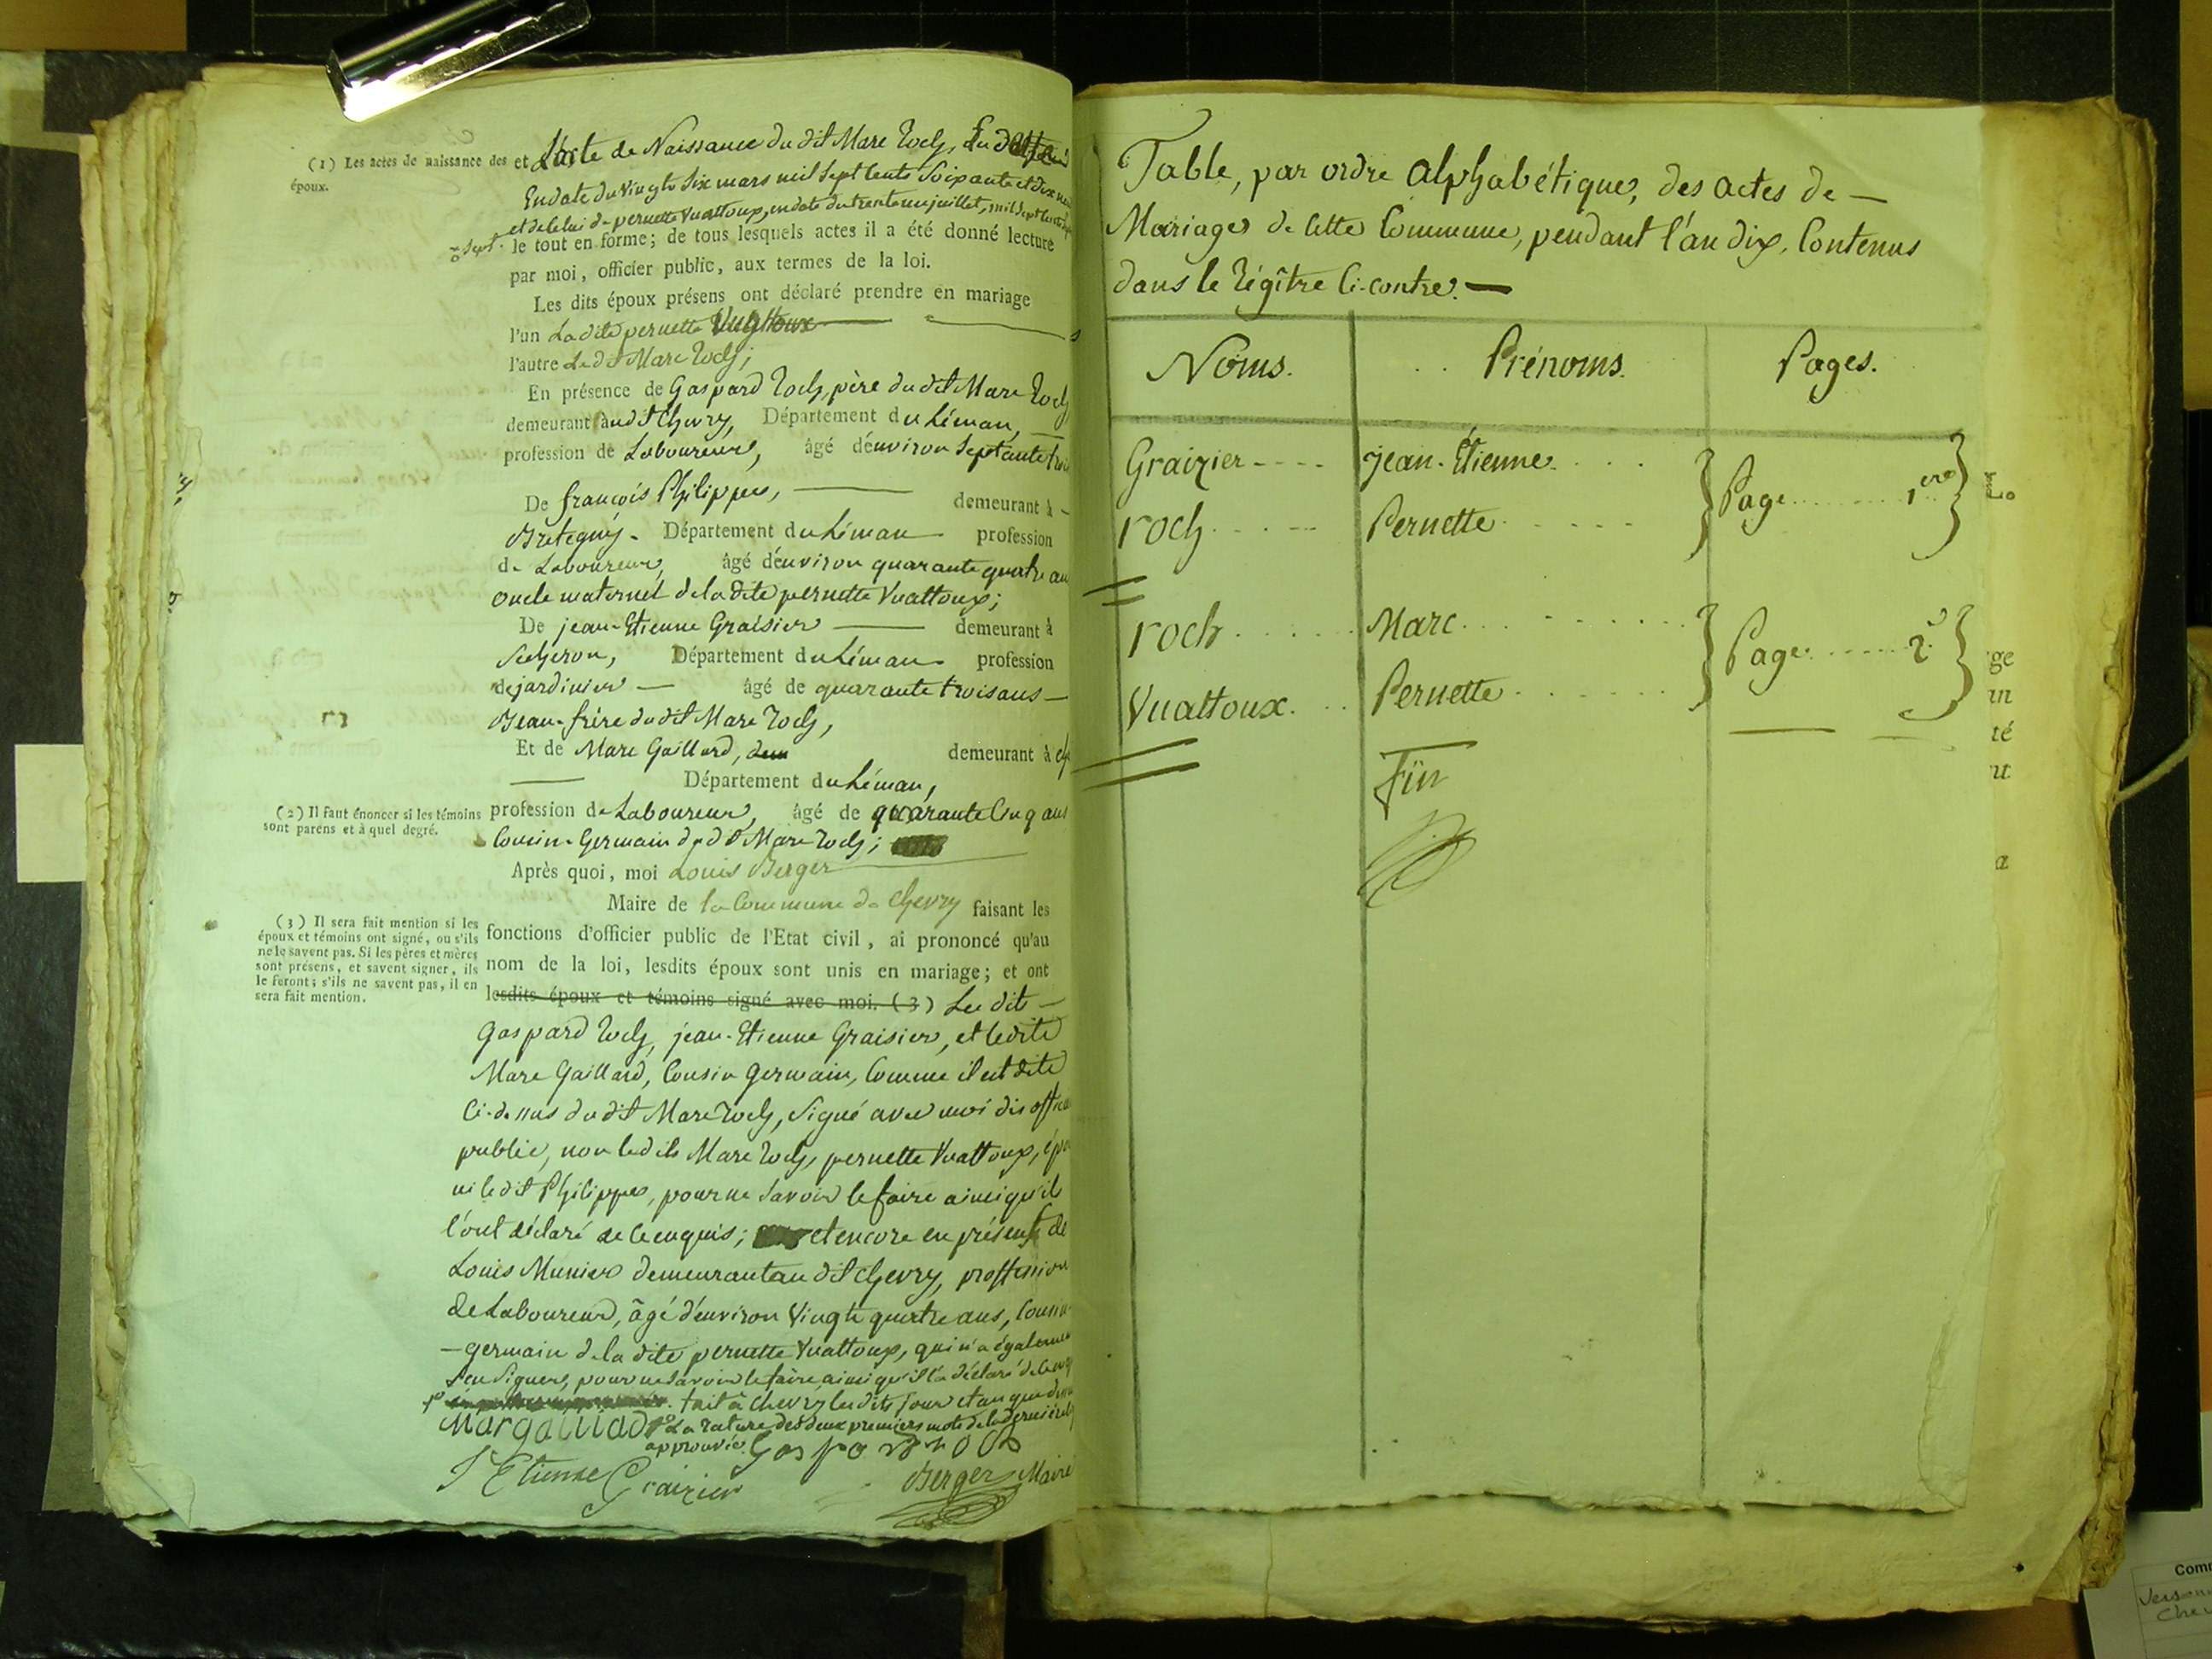 (1) Les actes de naissance des
époux.
et L'acte de Naissance du dit Marc Roch,
En date du vingt six mars mil sept cents soixante et dix
et de celui de pernette Vuattoux, en date du trente un juillet, mil sept cents
le tout en forme; de tous lesquels actes il a été donné lecture
par moi, officier public, aux termes de la loi.
Les dits époux présens ont déclaré prendre en mariage
l'un La dite pernette Vuattoux
l'autre Le dit Marc Roch;
En présence de Gaspard Roch, père du dit Marc Roch
demeurant audit Chevry, Département du Léman,
profession de Laboureur, âgé d'environ septante
De françois Philippes, demeurant à
Bretegny. Département du Léman profession
de Laboureur, âgé d'environ quarante quatre
oncle maternel de la dite pernette Vuattoux;
De jean-Etienne Graisier demeurant à
Secheron, Département du Léman profession
de jardinier âgé de quarante trois ans
Beau-frère du dit Marc Roch,
Et de Marc Gaillard, demeurant à
Département du Léman,
(2) Il faut énoncer si les témoins
sont parens et à quel degré.
profession de Laboureur, âgé de quarante Cinq ans
Cousin-Germain du dit Marc Roch;
Après quoi, moi Louis Berger
Maire de la Commune de Chevry faisant les
(3) Il sera fait mention si les
époux et témoins ont signé, ou s'ils
ne le savent pas. Si les pères et mères
sont présens, et savent signer, ils
le feront; s'ils ne savent pas, il en
sera fait mention.
fonctions d'officier public de l'Etat civil, ai prononcé qu'au
nom de la loi, lesdits époux sont unis en mariage; et ont
lesdits époux et témoins signé avec moi. (3) Les dits
Gaspard Roch, jean-Etienne Graisier, et ledite
Marc Gaillard, Cousin germain, Comme il est dite
Ci-dessus du dit Marc Roch, signé avec moi dis
public, non ledits Marc Roch, pernette Vuattoux,
ni le dit Philippes, pour ne Savoir le faire ainsi qu'ils
l'ont déclaré de ce enquis; et encore en présence de
Louis Munier demeurant au dit Chevry, proffession
de Laboureur, âgé d'environ Vingt quatre ans, Cousin
-germain de la dite pernette Vuattoux, qui n'a également
Seu Signer, pour ne savoir le faire ainsi qu'il l'a déclaré de ce
fait à Chevry les dits Jour et an que
Margaillad La rature des deux premiers mots de la dernière
approuvée. Gaspard roch
J Etienne Graizier Berger Maire
Table, par ordre alphabétique, des actes de —
Mariages de Cette Commune, pendant l'an dix, Contenus
dans le Régître Ci-contre. —
Noms. Prénoms. Pages.
Graizier jean-Étienne
Page 1ere
roch Pernette
roch Marc
Page 2e
Vuattoux. Pernette
Fin
ge
in
té
ut
a
Com